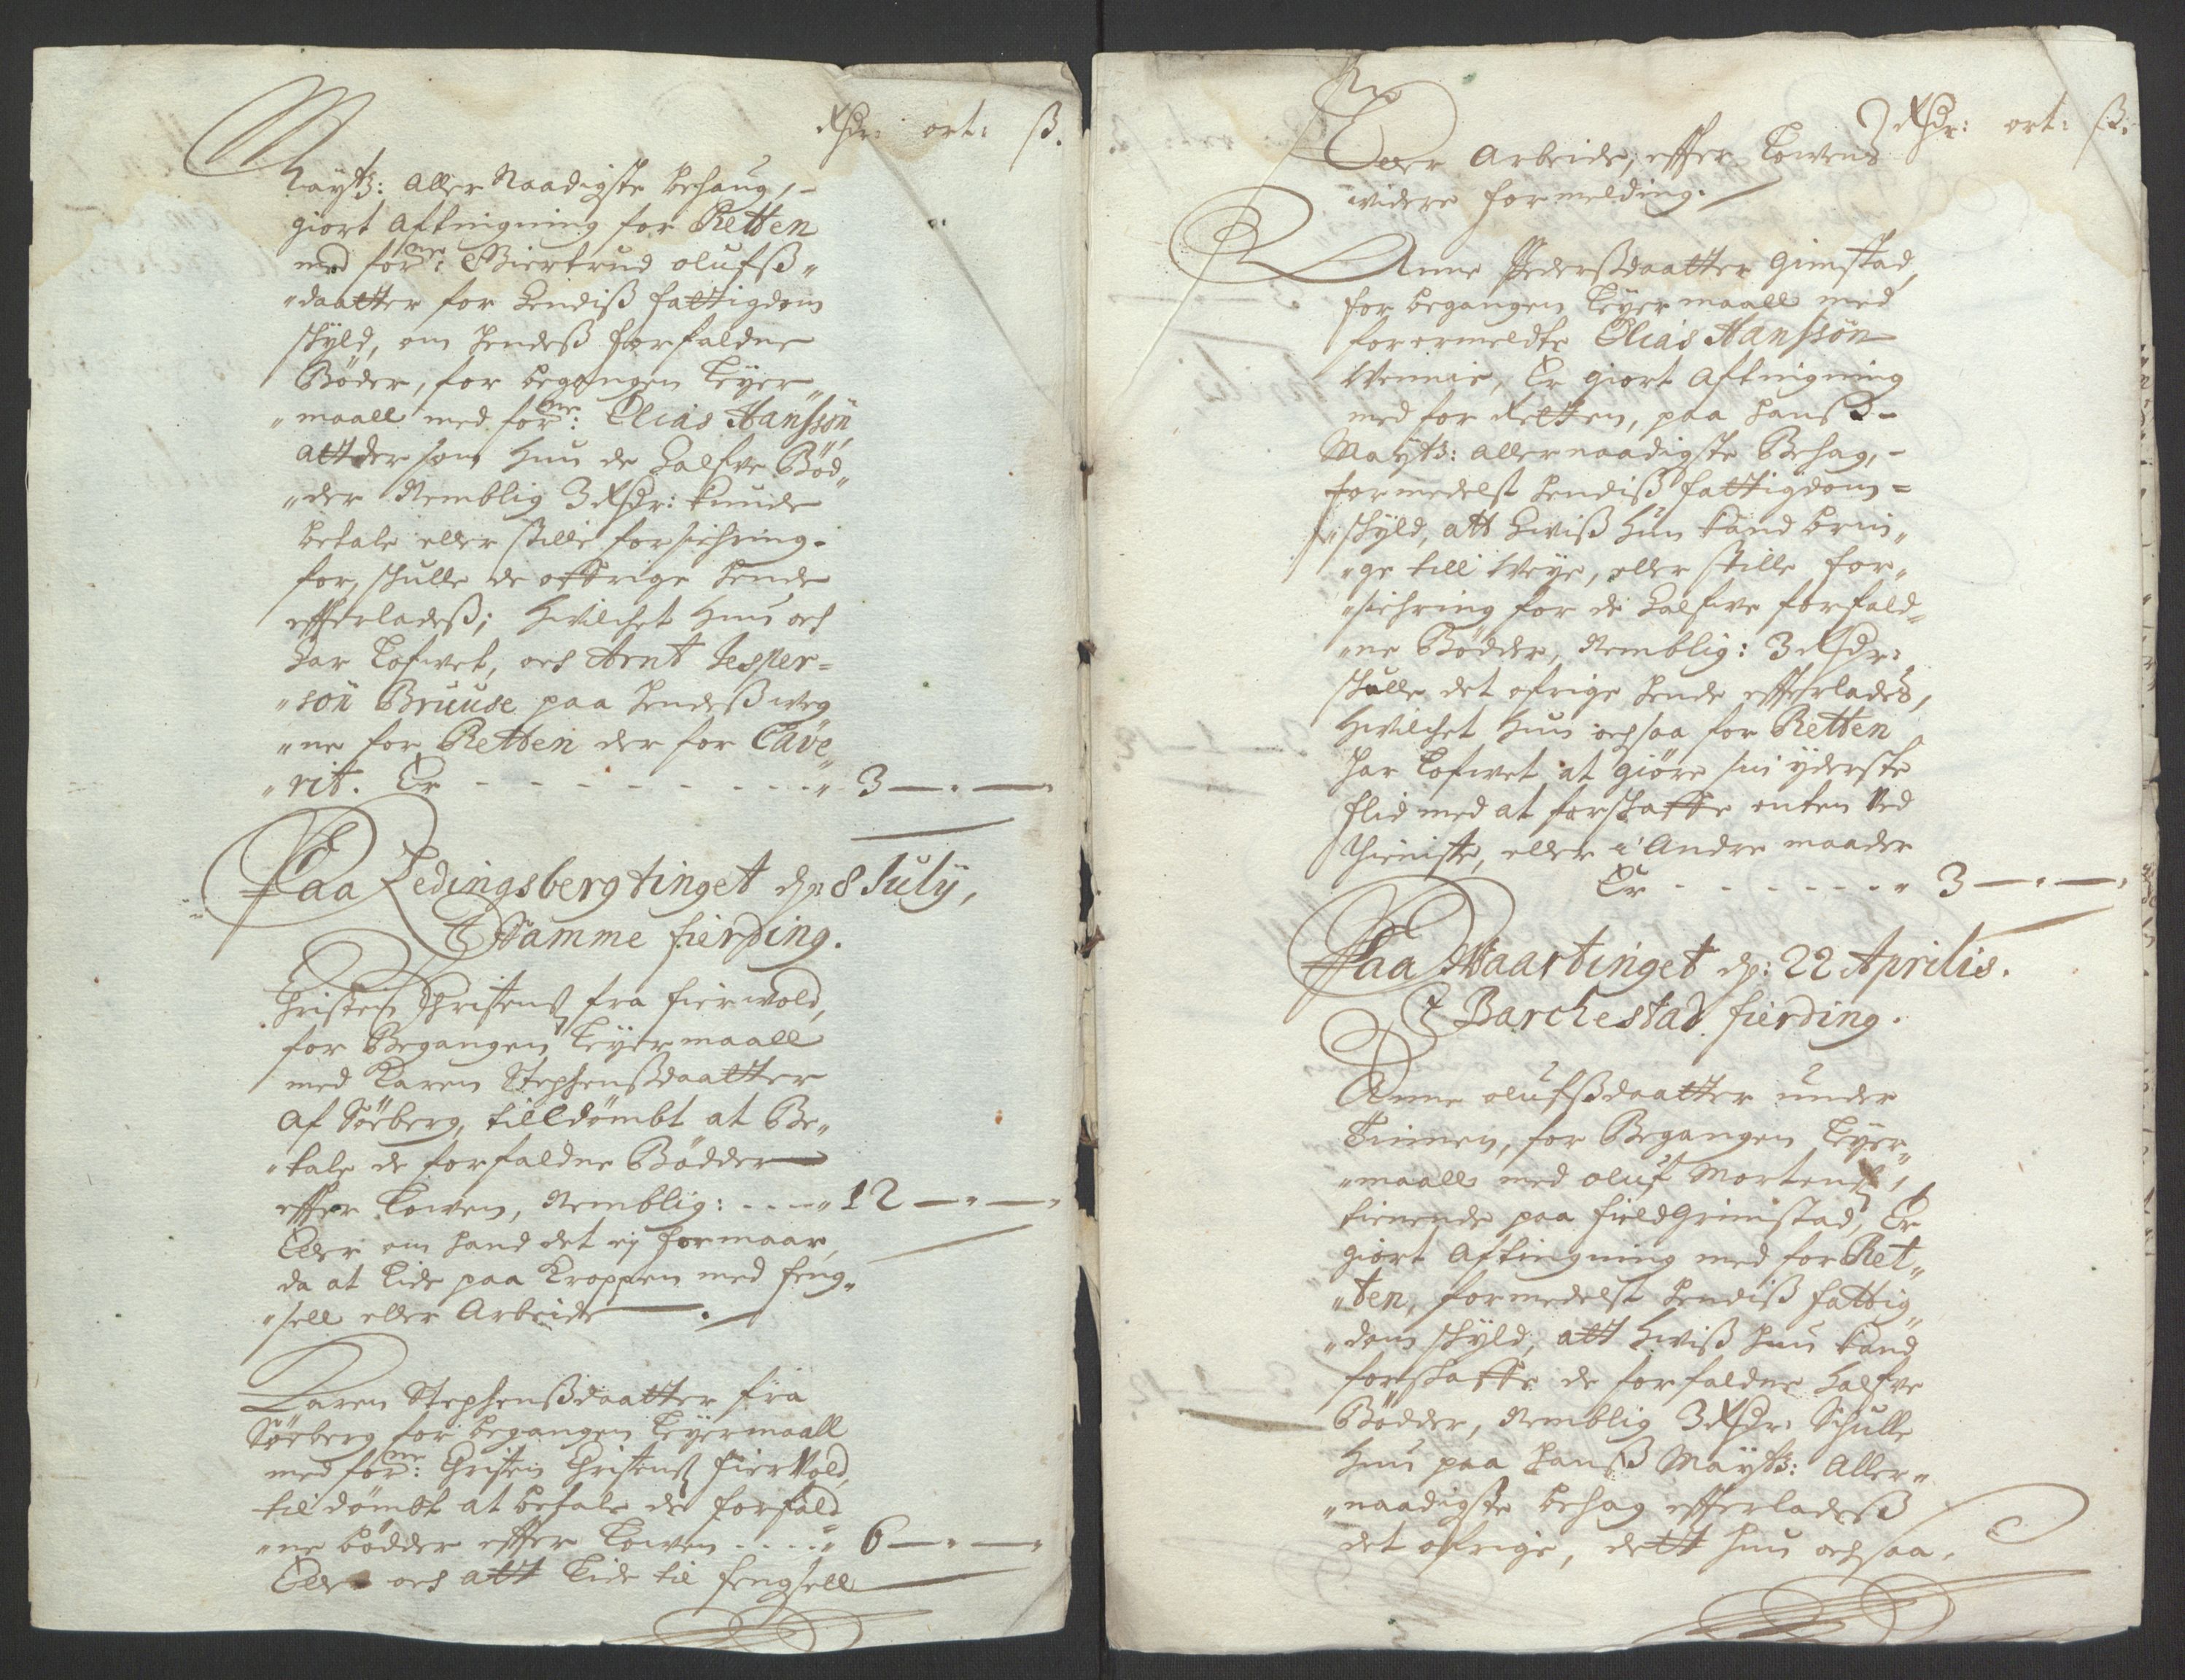 Rhdr: ort: ß.
Mayts: Aller Naadigste behaug,
giort aftingning for Retten
med forne: Giertrud olufß„
„daatter for hendiß fattigdom
skyld, om hendeß forfaldne
Bøder, for begangen Leyer„
„maall med forne: Elias Hanssøn,
att der som hun de halfve Bød„
„der Nemblig 3 Rhdr: kunde
betale eller stille forsichring
for, schulle de øffrige hende
effterladeß; hvilchet hun och
har lofvet, och Arnt Jesper=
„søn Bruuse paa hendeß weg„
„ne for Retten der for Cave„
„rit. Er - - - - - - - - „ 3 — „ —
Paa Ledingsberg tinget dn: 8 July,
J Stamme fierding.
Christen Christenß fra fierwold,
for Begangen Leyermaall
med Karen Stephensßdaatter
af Søeberg, tilldømbt at Be„
„tale de forfaldne Bødder
effter Lowen, Nemblig: - - - „ 12 — „ —
Eller om hand det ej formaar,
da at lide paa Kroppen med feng„
„sell eller Arbeide
Karen Stephensßdaatter fra
Søeberg for begangen Leyermaall
med forne: Christen Christenß fierwold,
til dømbt at betale de forfald„
„ne bødder effter Lowen - - - - „ 6 — „ —
Eller och att lide til fengsell
Rhdr: ort: ß.
Eller Arbeide, effter Lowens
widere formelding.
Anne Pedersßdaatter Grimstad,
for begangen Leyermaall med
forermeldte Elias Hanssøn
Wennie, Er giort aftingning
med for Retten, paa hanß
Mayts: allernaadigste Behag,
formedelst hendiß fattigdom=
„skyld, att hwiß hun kand brin„
„ge till weye, eller stille for„
„sichring for de halfve forfald„
„ne Bødder, Nemblig: 3 Rhdr:
schulle det øfrige hende effterlades,
hwilchet hun ochsaa for Retten
har lofvet at giøre sin yderste
flid med at forskaffe enten ved
thieniste, eller i Andre maader
Er - - - - - - - „ 3 — „ —
Paa Waartinget dn: 22 Aprilis.
J Barchestad fierding.
Anne olufsßdaatter under
Tinnen, for Begangen Leyer„
„maall med oluf Mortenß,
tienende paa fieldGrimstad, Er
giort aftingning med for Ret„
„ten, formedelst hendiß fattig„
„dom skyld, att hwiß hun kand
forskaffe de forfaldne halfve
Bødder, Nemblig 3 Rhdr: Schulle
hun paa hanß Mayts: Aller„
„naadigste behag effterladeß
det øfrige, dett hun ochsaa